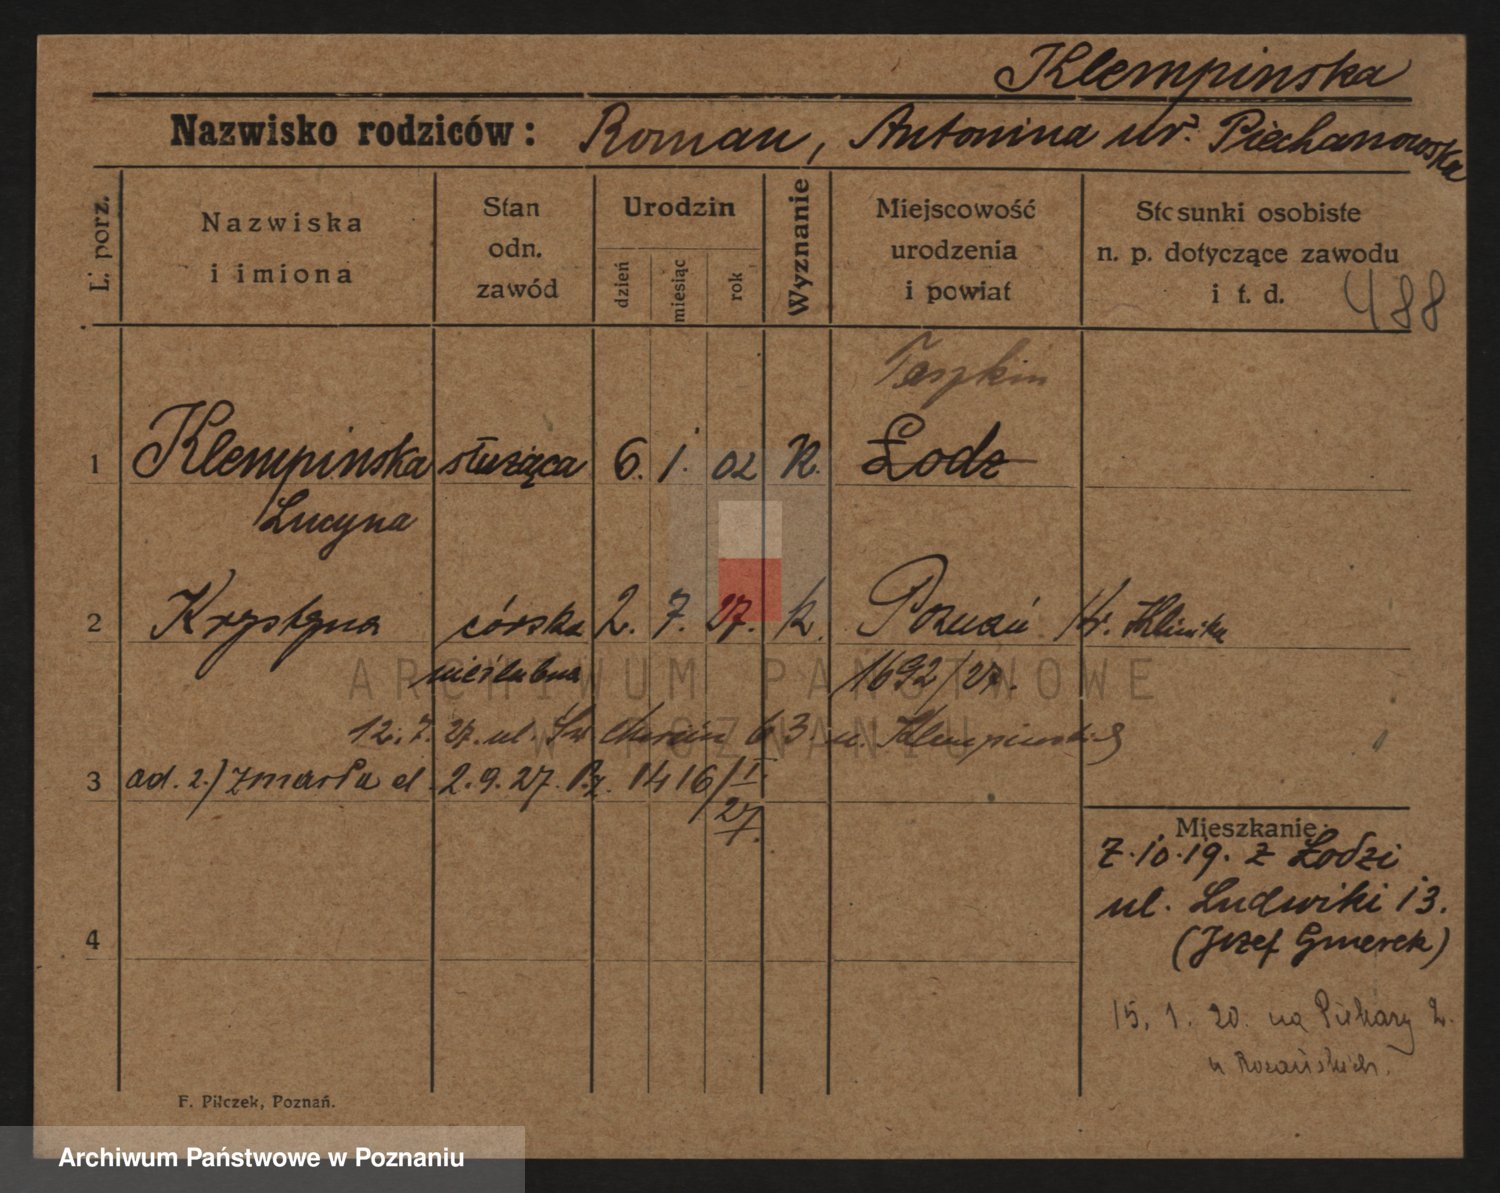 Klempinska
Nazwisko rodziców: Roman, Antonina ur. Piechanowska
L. porz.
Nazwiska
i imiona
Stan
odn.
zawód
Urodzin
dzień
miesiąc
rok
Wyznanie
Miejscowość
urodzenia
i powiat
Stosunki osobiste
n. p. dotyczące zawodu
i t. d.
488
Taszkin
1 Klempinska służąca 6. 1. 02 K. Łodz
Lucyna
2 Krystyna córska 2. 7. 27. k. Poznań Kr. Klinika
nieślubna 1692/27.
12.7.27. ul. Św Marcin 63. u. Klempinskiej
3 ad. 2.) zmarła d. 2.9.27. Pz. 1416/I
27.
Mieszkanie
7.10.19. z Łodzi
ul. Ludwiki 13.
(Jozef Gmerek)
4
15. 1. 20. na Piekary 2.
u Rozańskich.
F. Pilczek, Poznań.
ARCHIWUM PAŃSTWOWE
W POZNANIU
Archiwum Państwowe w Poznaniu